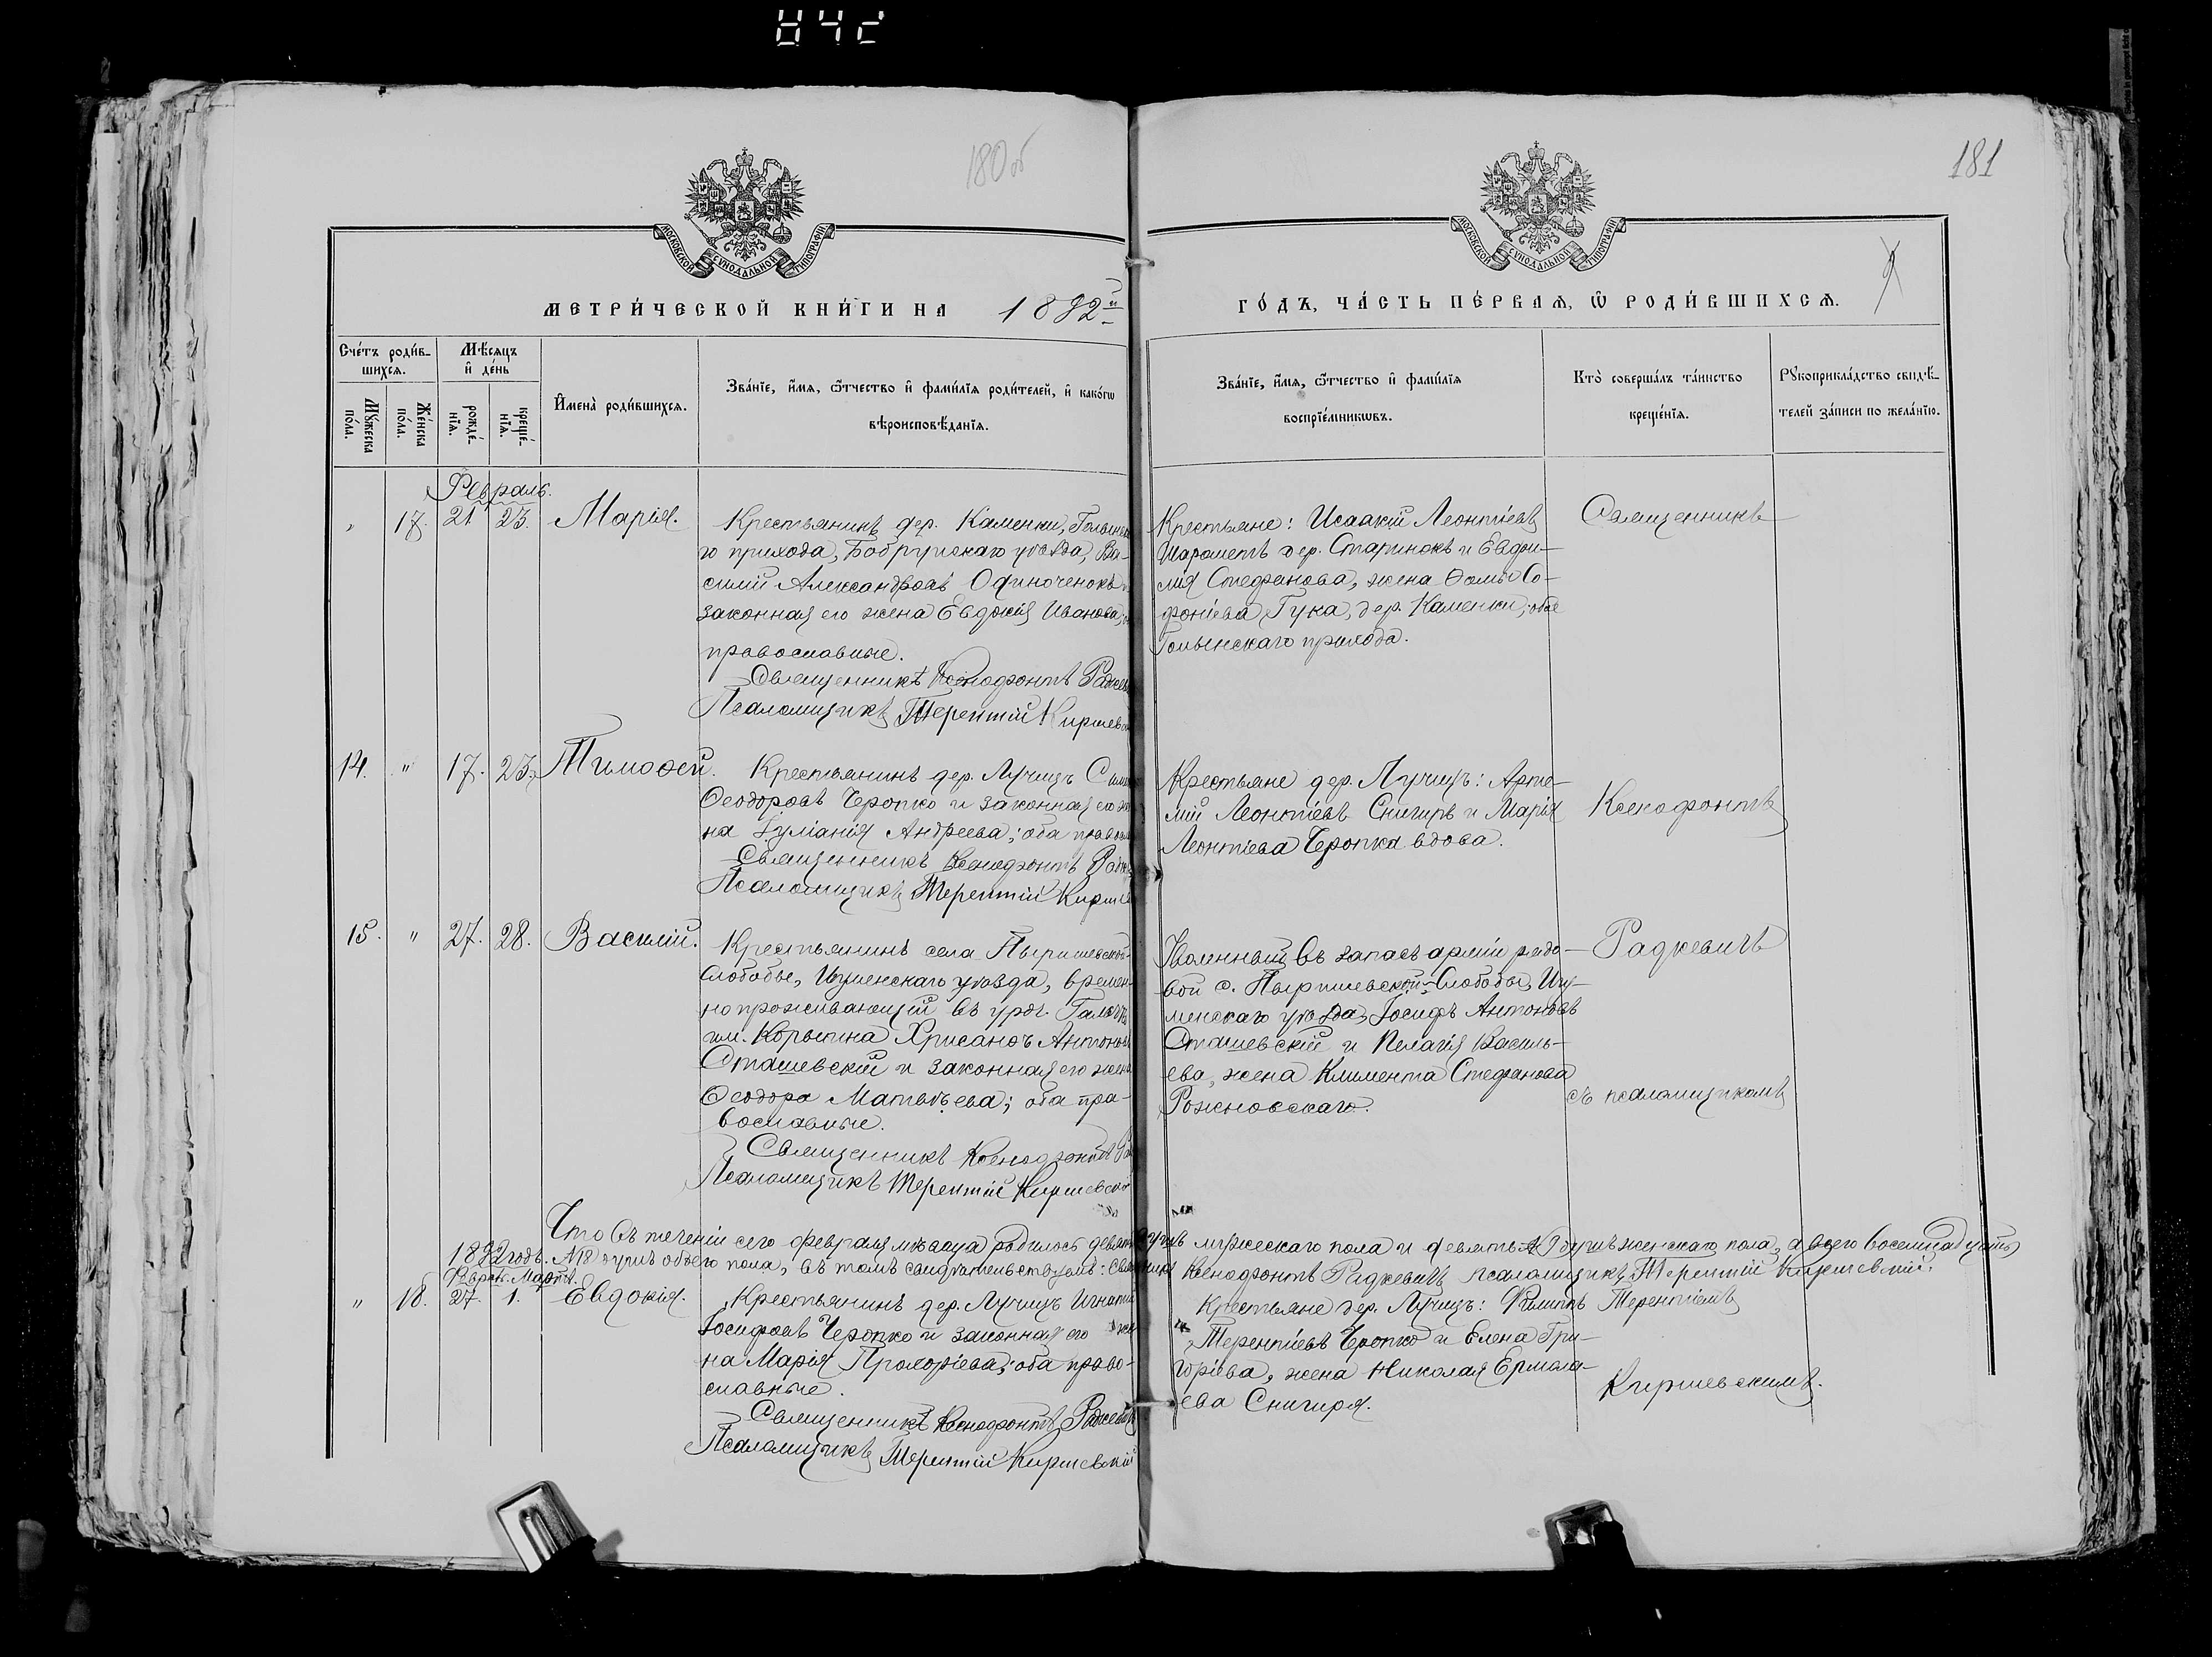 180об
181
МОСКОВСКОЙ СѴНОДАЛЬНОЙ ТИПОГРАФІИ
МОСКОВСКОЙ СѴНОДАЛЬНОЙ ТИПОГРАФІИ
МЕТРИ́ЧЕСКОЙ КНИ́ГИ НА 1892й
ГО́ДЪ, ЧА́СТЬ ПЕ́РВАЯ, Ѡ РОДИ́ВШИХСЯ.
Сче́тъ роди́в-
шихся.
Мꙋ́жеска по́ла.
Же́нска по́ла.
Мѣ́сяцъ
и҆ де́нь
рожде́-
нїя.
креще́-
нїя.
И҆мена̀ роди́вшихся.
Зва́нїе, и҆́мя, ѻ҆́тчество и҆ фами́лїя роди́телей, и҆ како́гѡ
вѣроисповѣ́данїя.
Зва́нїе, и҆́мя, ѻ҆́тчество и҆ фами́лїя
воспрїе́мникѡвъ.
Кто̀ соверша́лъ та́инство
креще́нїя.
Рꙋкоприкла́дство свидѣ́-
телей за́писи по жела́нїю.
Февраль.
" 17. 21 23. Марія.
Крестьянинъ дер. Каменки,
го прихода, Бобруйскаго уѣзда, Ва-
силій Александровъ Одиноченокъ и
законная его жена Евдокія Иванова;
православные.
Священникъ Ксенофонтъ
Псаломщикъ Терентій
Крестьяне: Исаакій Леонтіевъ
Шарометъ дер. Старинокъ и Евфи-
мія Стефанова, жена Ѳомы Со-
фоніева Гука, дер. Каменки; обое
Голынскаго прихода.
Священникъ
14. " 17. 23. Тимоѳей.
Крестьянинъ дер. Лучицъ
Ѳеодоровъ Чропко и законная его же-
на Іуліанія Андреева; оба
Священникъ Ксенофонтъ
Псаломщикъ Терентій
Крестьяне дер. Лучицъ: Арте-
мій Леонтіевъ Снигирь и Марія
Леонтіева Чропка вдова.
Ксенофонтъ
15. " 27. 28. Василій.
Крестьянинъ села Пыришевской-
Слободы, Игуменскаго уѣзда, времен-
но проживающій въ уроч.
им. Корытина Хрисанѳъ Антоновъ
Сташевскій и законная его жена
Ѳеодора Матвѣева; оба пра-
вославные.
Священникъ Ксенофонтъ
Псаломщикъ Терентій Киршевскій
Уволенный въ запасъ арміи рядо-
вой с. Пыришевской-Слободы, Игу-
менскаго уѣзда, Іосифъ Антоновъ
Сташевскій и Пелагія Василь-
ева, жена Климента Стефанова
Рожновскаго.
Радкевичъ
съ псаломщикомъ
Что въ теченіи сего февраля мѣсяца родилось девять душъ мужескаго пола и девять душъ женскаго пола, а всего восемнадцать
1892 годъ. №18 душъ обоего пола, въ томъ свидѣтельствуемъ: Священникъ Ксенофонтъ Радкевичъ Псаломщикъ Терентій Киршевскій.
Февр. Мартъ.
" 18. 27. 1. Евдокія.
Крестьянинъ дер. Лучицъ Игнатій
Іосифовъ Чропко и законная его же-
на Марія Прокофіева; оба право-
славные.
Священникъ Ксенофонтъ Радкевичъ
Псаломщикъ Терентій Киршевскій
Крестьяне дер. Лучицъ: Филиппъ
Терентіевъ Чропко и Елена Гри-
горіева, жена Николая Ермола-
ева Снигиря.
Терентіемъ
Киршевскимъ.